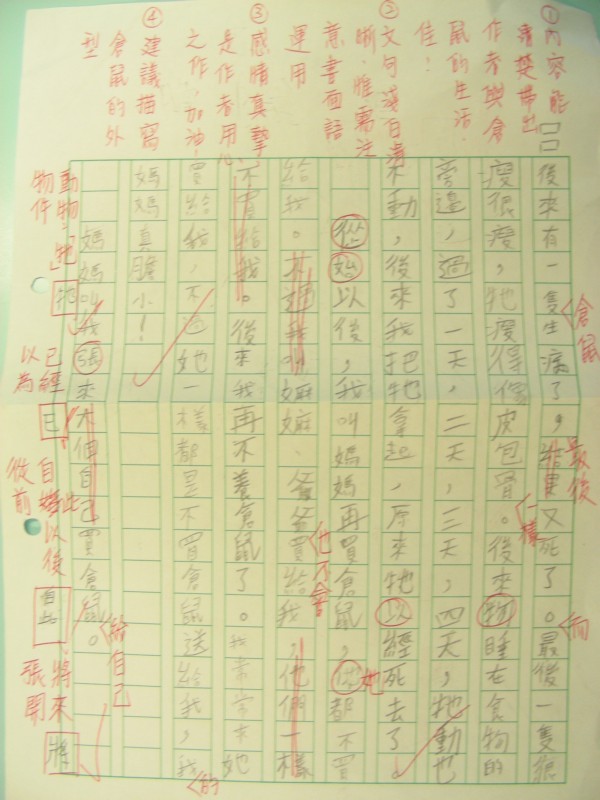 ①內容能
清楚帶出
作者與倉
鼠的生活,
佳!
②文句淺白清
晰,惟需注
意書面語
運用
③感情真摯
是作者用心
之作,加油!
④建議描寫
倉鼠的外
型
後來有一隻生病了,結果又死了。最後一隻很
瘦很瘦,牠瘦得像皮包骨。後來物睡在食物的
旁邊,過了一天,二天,三天,四天,牠動也
不動,後來我把牠拿起,原來牠以經死去了。
從始以後,我叫媽媽再買倉鼠,都不買
給我。不過我叫嫲嫲、爸爸買給我,他們一樣
不買給我。後來我再不養倉鼠了。我常常求她
買給我,不過她一樣都是不買倉鼠送給我,我
媽媽真膽小!
媽媽叫我張來自己買倉鼠。
倉鼠
最後
一樣
而
也不會
她
的
給自己
動物:「牠」
物件
已經
以為
已
自此以後
從前
自此
將來
張開
將